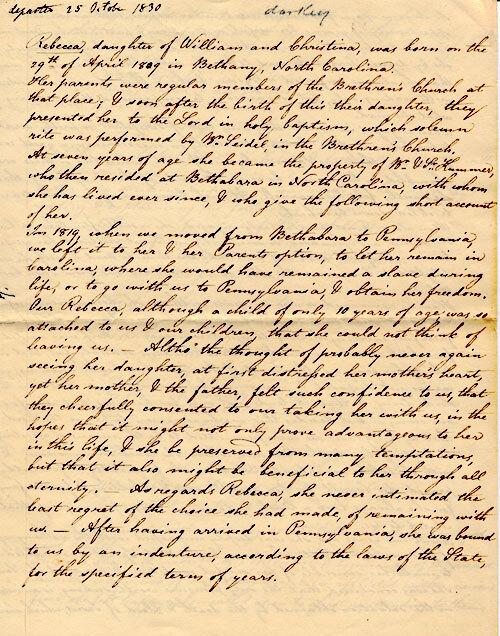 departed 25 Octobr 1830
darkey
Rebecca, daughter of William and Christina, was born on the
29th of April 1809 in Bethany, North Carolina.
Her parents were regular members of the Brethren's Church at
that place; & soon after the birth of this their daughter, they
presented her to the Lord in holy baptism, which solemn
rite was performed by Wm Seidel, in the Brethren's Church.
At seven years of age she became the property of Wm & Sr. Hammer,
who then resided at Bethabara in North Carolina, with whom
she has lived ever since, & who give the following short account
of her.
In 1819, when we moved from Bethabara to Pennsylvania,
we left it to her & her Parents option, to let her remain in
Carolina, where she would have remained a slave during
life, or to go with us to Pennsylvania, & obtain her freedom.
Our Rebecca, although a child of only 10 years of age was so
attached to us & our children, that she could not think of
leaving us. — Altho' the thought of probably never again
seeing her daughter, at first distressed her mother's heart,
yet her mother, & the father, felt such confidence to us, that
they cheerfully consented to our taking her with us, in the
hopes that it might not only prove advantageous to her
in this life, & she be preserved from many temptations,
but that it also might be beneficial to her through all
eternity. — As regards Rebecca, she never intimated the
least regret of the choice she had made, of remaining with
us. — After having arrived in Pennsylvania, she was bound
to us by an indenture, according to the laws of the State,
for the specified term of years.